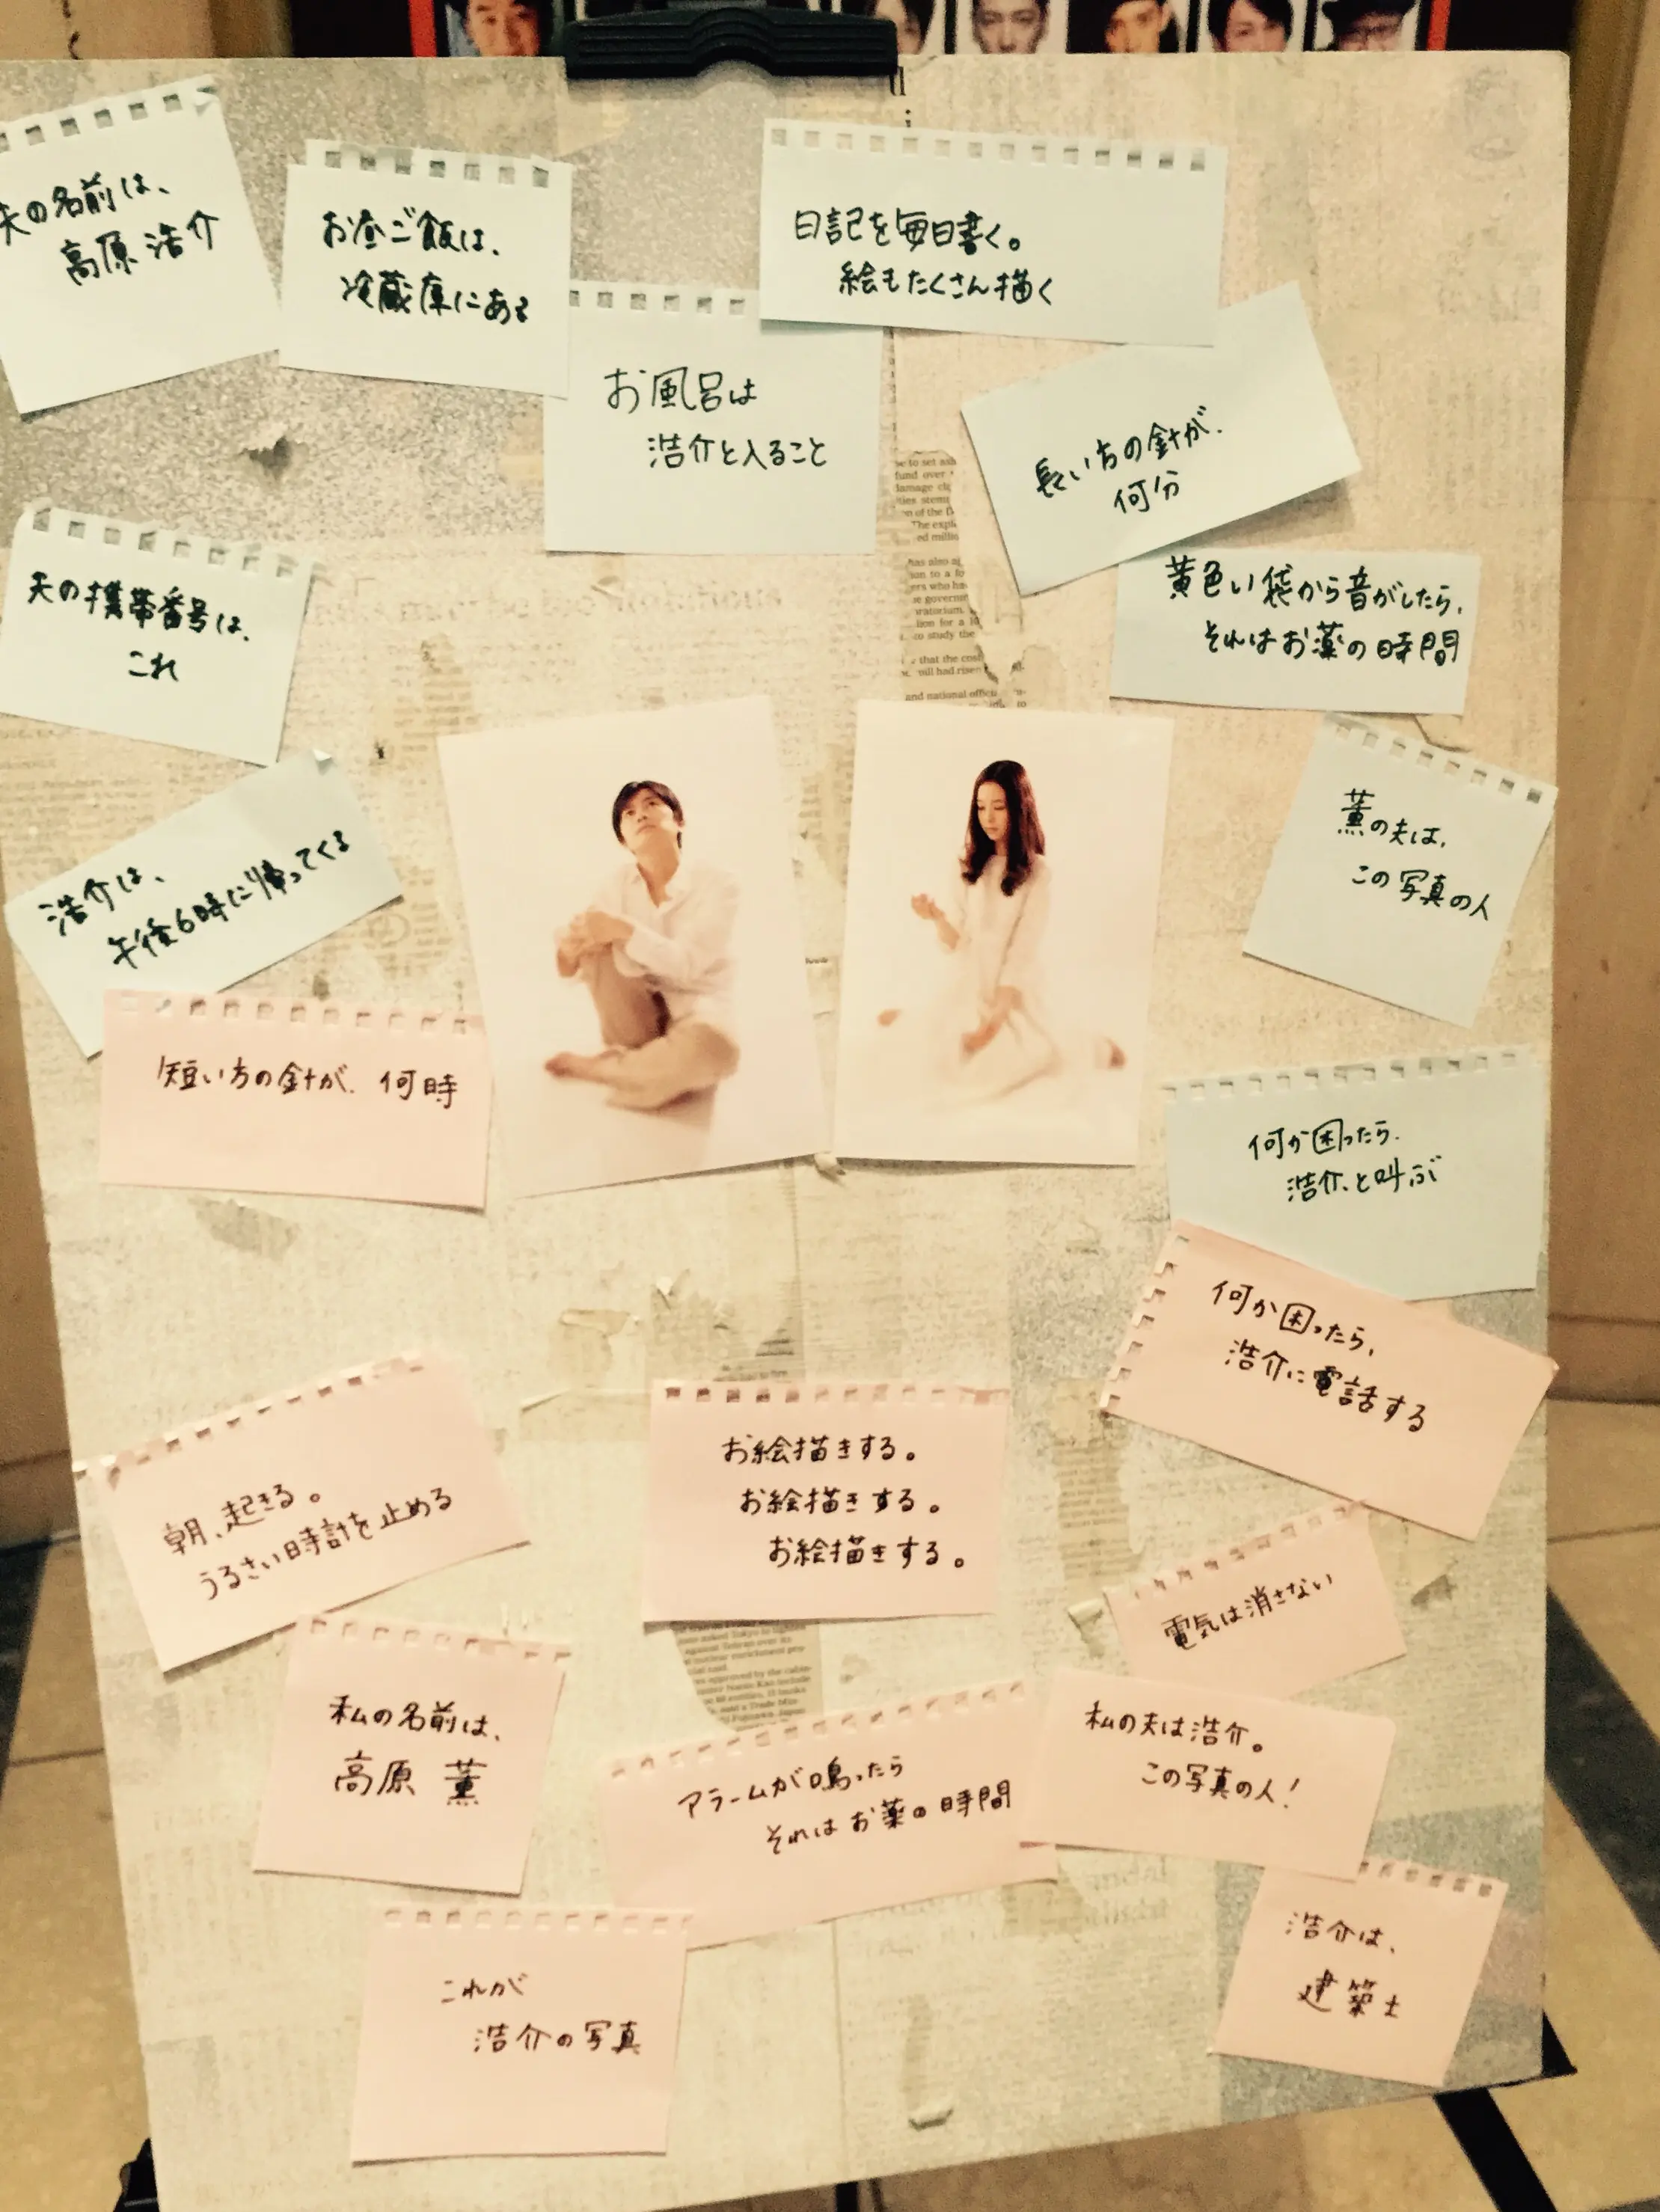 夫の名前は、
高原 浩介
お昼ご飯は、
冷蔵庫にある
日記を毎日書く。
絵もたくさん描く
お風呂は
浩介と入ること
長い方の針が、
何分
夫の携帯番号は、
これ
黄色い袋から音がしたら、
それはお薬の時間
浩介は、
午後6時に帰ってくる
薫の夫は、
この写真の人
短い方の針が、何時
何か困ったら、
浩介、と叫ぶ
何か困ったら、
浩介に電話する
朝、起きる。
うるさい時計を止める
お絵描きする。
お絵描きする。
お絵描きする。
電気は消さない
私の名前は、
高原 薫
アラームが鳴ったら
それはお薬の時間
私の夫は浩介。
この写真の人!
これが
浩介の写真
浩介は、
建築士